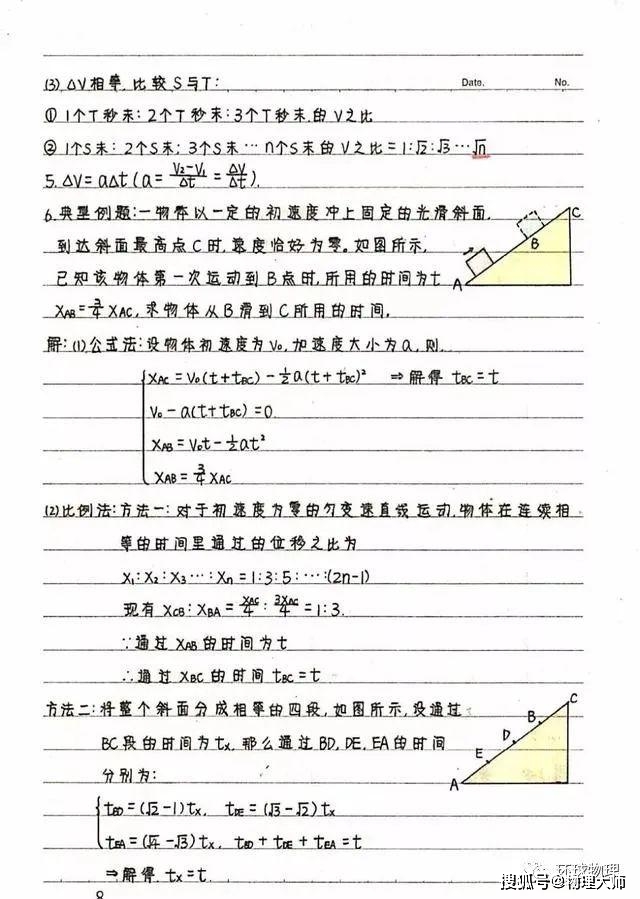 (3). ΔV相等, 比较S与T:
Date. No.
① 1个T秒末: 2个T秒末: 3个T秒末的V之比
② 1个S末: 2个S末: 3个S末…n个S末的V之比=1:√2:√3…√n
5. ΔV=aΔt(a=(V₂-V₁)/Δt=ΔV/Δt).
6. 典型例题:一物体以一定的初速度冲上固定的光滑斜面,
到达斜面最高点C时,速度恰好为零。如图所示,
已知该物体第一次运动到B点时,所用的时间为t
XAB=3/4 XAC, 求物体从B滑到C所用的时间.
A B C
解:(1)公式法:设物体初速度为V₀,加速度大小为a,则
XAC=V₀(t+tBC)-½a(t+tBC)² ⇒解得 tBC=t
V₀-a(t+tBC)=0
XAB=V₀t-½at²
XAB=3/4 XAC
(2)比例法:方法一:对于初速度为零的匀变速直线运动,物体在连续相
等的时间里通过的位移之比为
X₁:X₂:X₃…:Xn=1:3:5:…:(2n-1)
现有XCB:XBA=XAC/4:3XAC/4=1:3.
∵通过XAB的时间为t
∴通过XBC的时间tBC=t
方法二:将整个斜面分成相等的四段,如图所示,设通过
BC段的时间为tx,那么通过BD,DE,EA的时间
分别为:
A E D B C
tBD=(√2-1)tx, tDE=(√3-√2)tx
tEA=(√4-√3)tx, tBD+tDE+tEA=t
⇒解得 tx=t
8
环球物理
搜狐号@物理大师